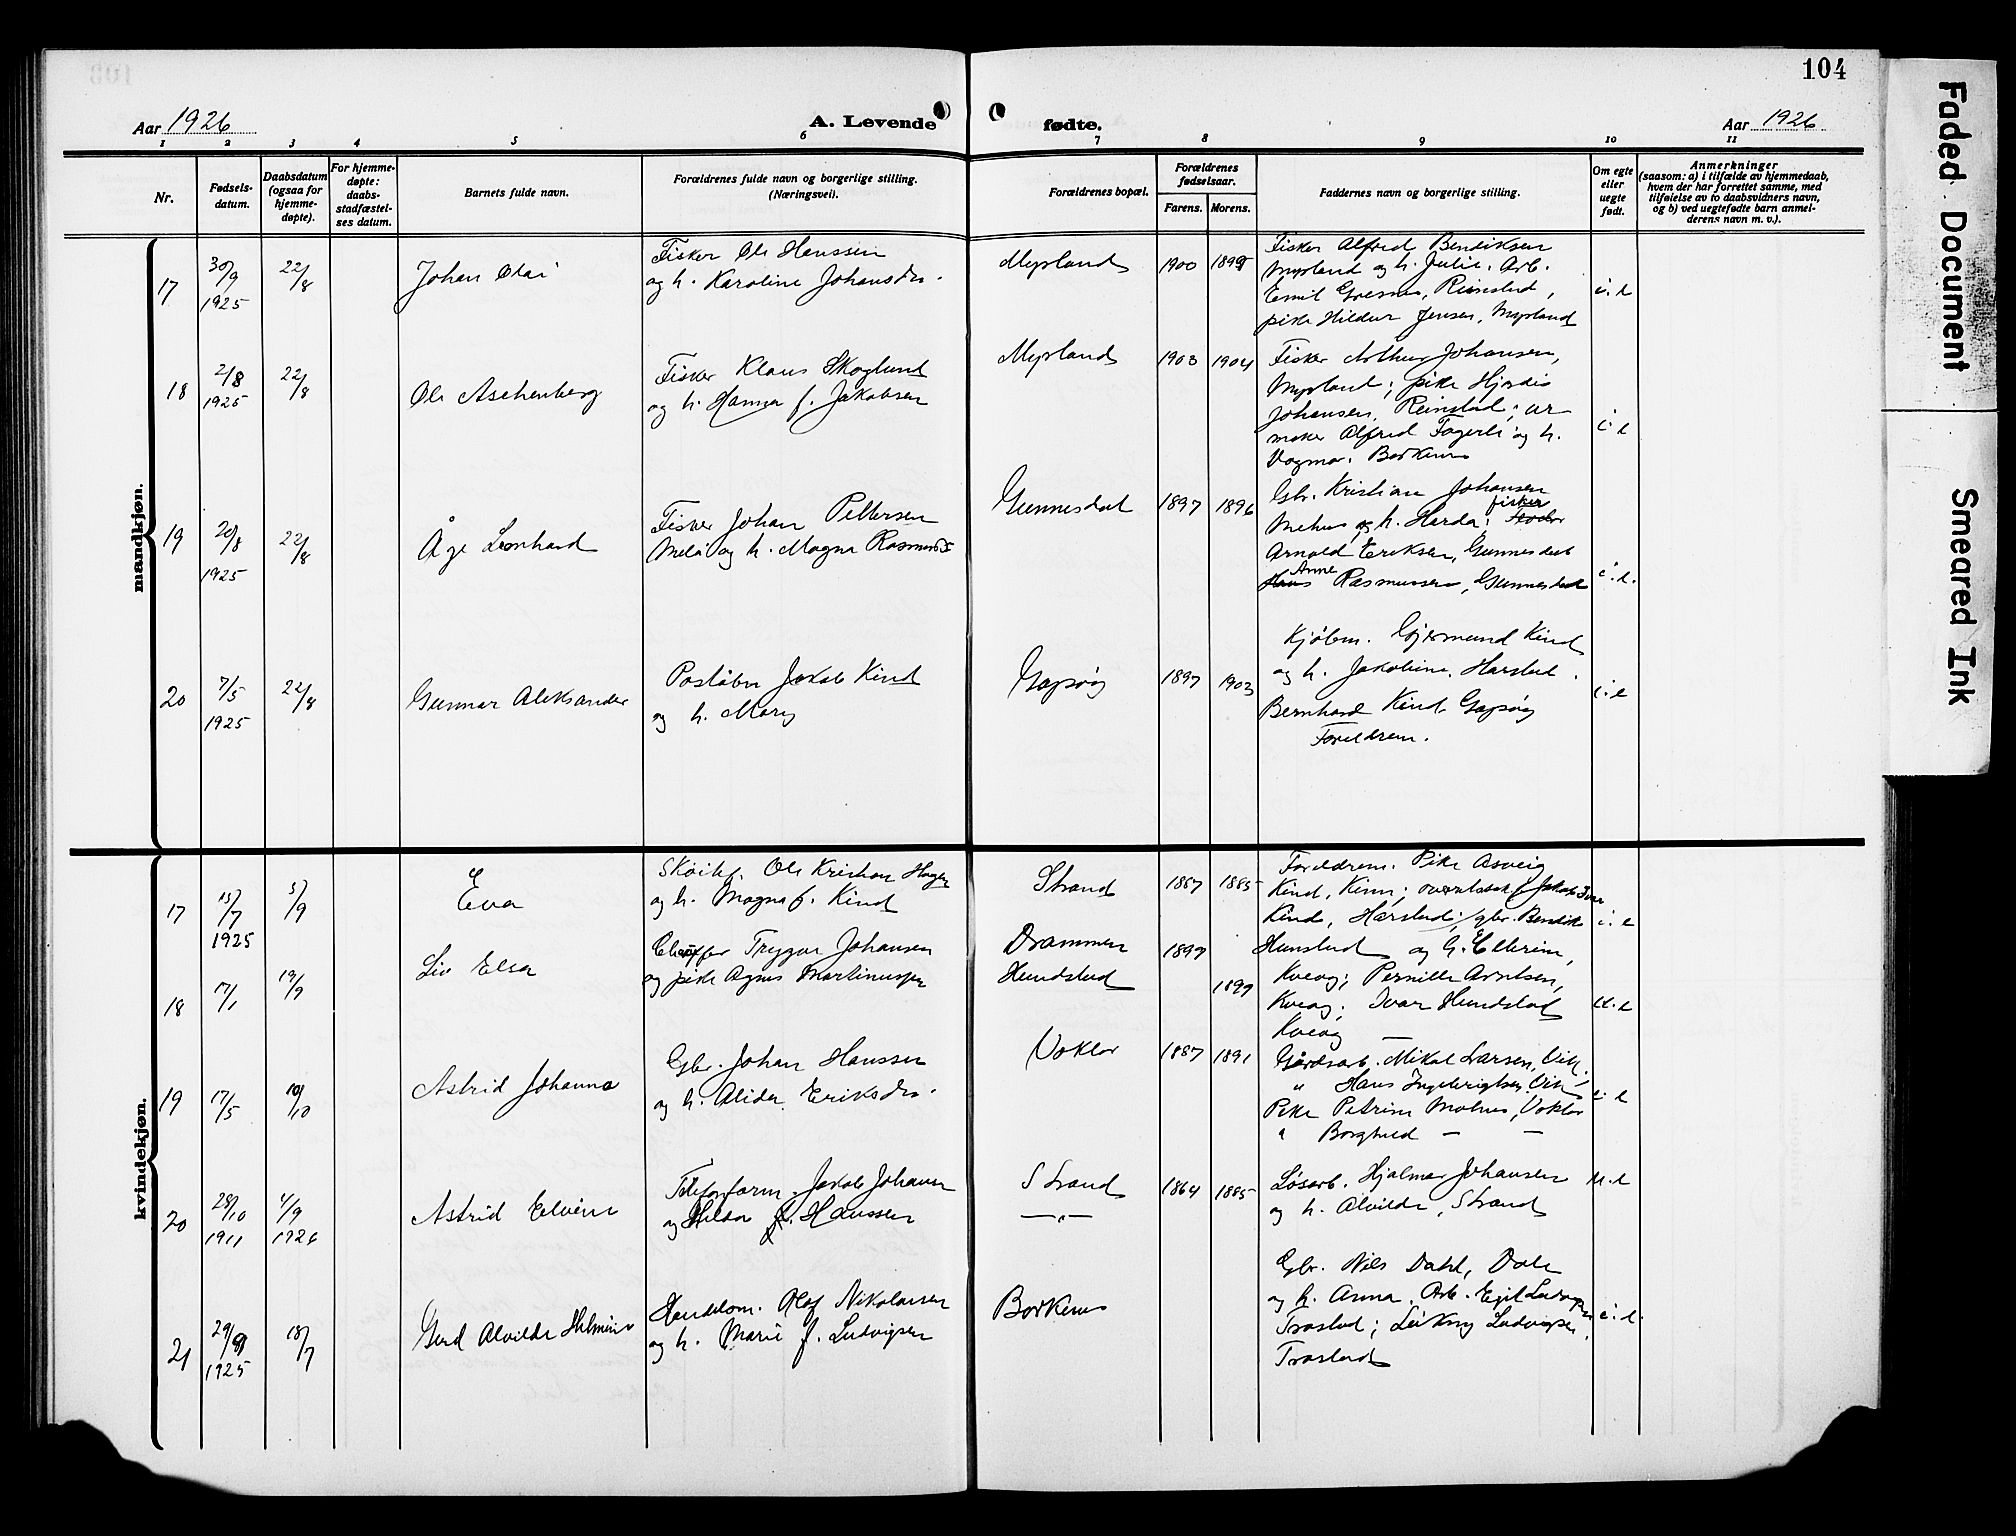 104
Aar 1926
A. Levende
fødte.
Aar 1926
1 2 3 4 5 6 7 8 9 10 11
Nr.
Fødsels-
datum.
Daabsdatum
(ogsaa for
hjemme-
døpte).
For hjemme-
døpte:
daabs-
stadfæstel-
ses datum.
Barnets fulde navn.
Forældrenes fulde navn og borgerlige stilling.
(Næringsvei).
Forældrenes bopæl.
Forældrenes
fødselsaar.
Farens. Morens.
Faddernes navn og borgerlige stilling.
Om egte
eller
uegte
født.
Anmerkninger
(saasom: a) i tilfælde av hjemmedaab,
hvem der har forrettet samme, med
tilføielse av to daabsvidners navn,
og b) ved uegtefødte barn anmel-
derens navn m. v.).
mandkjøn.
17
30/9
1925
22/8
Johan Olai
Fisker Ole Hanssen
og h. Karoline Johansdr.
Myrland
1900
Fisker Alfred Bendiksen
Myrland og h. Julie. Arb.
Emil Reinstad,
pike Hildur Jensen, Myrland
i. e
18
2/8
1925
22/8
Ole Aschenberg
Fisker Klaus Skoglund
og h. Hanna f. Jakobsen
Myrland
1903 1904
Fisker Arthur Johansen,
Myrland; pike Hjørdis
Johansen, Reinstad; ur-
maker Alfred Fagerli og h.
Dagmar. Borkenes
i. e
19
20/8
1925
22/8
Åge Leonhard
Fisker Johan Pettersen
Melå og h. Magna Rasmusd.
Gunnesdal
1897 1896
Gbr. Kristian Johansen
fisker
Mehus og h. Harda;
Arnold Eriksen, Gunnesdal
Anne
Rasmussen, Gunnesdal
i. e.
20
7/5
1925
22/8
Gunnar Aleksander
Poståbn Jakob Kind
og h. Mary
Gapsøy
1897 1903
Kjøbm. Gjermund Kind
og h. Jakobine, Harstad.
Bernhard Kind Gapsøy
Foreldrene.
i. e
kvindekjøn.
17
15/7
1925
5/9
Eva
Ole Kristian Hagen
og h. Magna f. Kind
Strand
1887 1885
Foreldrene. Pike Asveig
Kind, Kinn; Jakob
Kind, Harstad; gbr. Bendik
i. e
18
17/1
19/9
Liv Elsa
Chauffør Trygve Johansen
og pike Agnes Martinussen
Drammen
Hundstad
1897
1899
Hunstad og h. Ellerine,
Kveøy; Pernille Arntsen,
Kveøy; Ivar Hundstad
Kveøy —
u. e
19
17/5
10/10
Astrid Johanna
Gbr. Johan Hanssen
og h. Alida Eriksdr.
Voktor
1887 1891
Gårdsarb. Mikal Larsen, Vik.
" Hans Ingebrigtsen, Vik
Pike Petrine Molnes, Voktor
" Borghild — —
i. e
20
28/10
1911
4/9
1926
Astrid Elvine
Telefonform. Jakob Johansen
og Hilda f. Hanssen
Strand
— " —
1864 1885
Løsarb. Hjalmar Johansen
og h. Alvilde, Strand
u. e
21
29/9
1925
18/7
Gerd Alvilde Helmine
Handelsm. Olaf Nikolaisen
og h. Marie f. Ludvigsen
Borkenes
Gbr. Nils Dahl, Dale
og h. Anna. Arb. Egil Ludvigsen
Trastad; Leikny Ludvigsen,
Trastad
i. e.
Faded Document
Smeared Ink